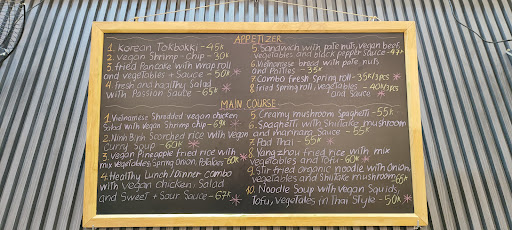 APPETIZER
1. Korean Tokbokki - 45K
2. Vegan Shrimp Chip - 30K
3. Fried Pancake with wrap roll
and vegetables + Sauce - 50K *
4 Fresh and healthy Salad
with Passion Sauce - 65K *
5 Sandwich with pate nuts, vegan beef
vegetables and black pepper sauce - 47K
6 Vietnamese bread with pate nuts
and Patties - 35K
7 Combo fresh Spring roll - 35K/3pcs *
8 Fried Spring roll, vegetables - 40K/3pcs
and Sauce *
MAIN COURSE
1 Vietnamese Shredded vegan chicken
Salad with vegan Shrimp chip - 69K *
2. Ninh Binh Scorched rice with vegan
Curry Soup - 60K *
3. vegan Pineapple Fried rice with
mix vegetables, Spring Onion, Potatoes - 60K *
4. Healthy Lunch / Dinner Combo
with vegan chicken Salad
and Sweet + Sour Sauce - 67K *
5. Creamy mushroom Spaghetti - 55K
6. Spaghetti with Shiitake mushroom
and marinara Sauce - 55K
7. Pad Thai - 55K *
8 Yangzhou fried rice with mix
vegetables and tofu - 60K *
9. Stir fried organic noodle with Onion,
vegetables and Shiitake mushroom 65K
10. Noodle Soup with Vegan Squids,
Tofu, vegetales in Thai Style - 50K *